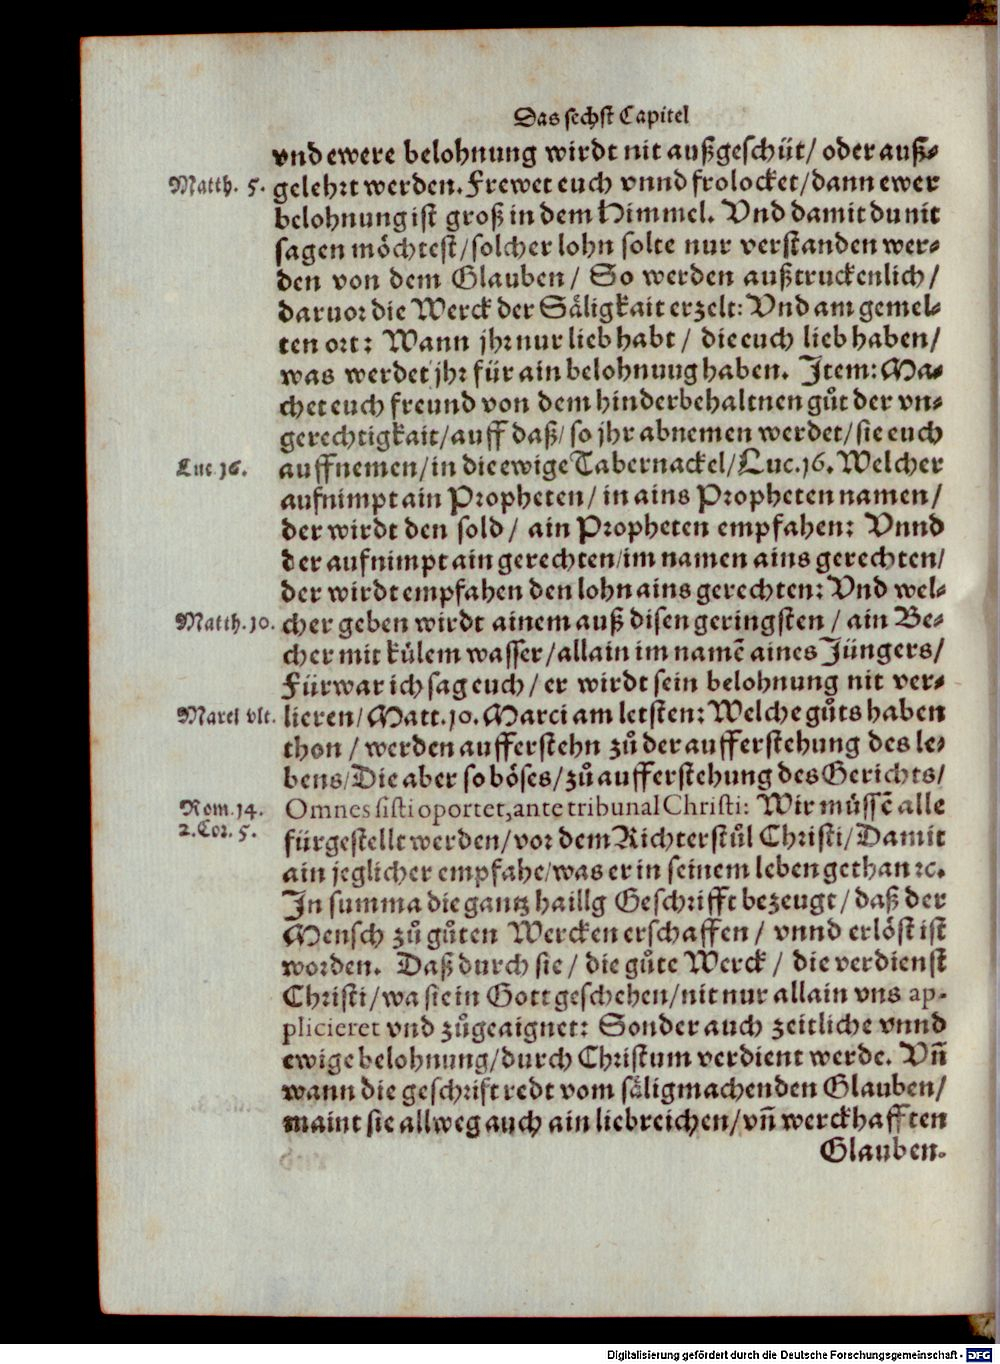 Das sechst Capitel
vnd ewere belohnung wirdt nit außgeschüt/ oder auß-
Matth. 5. gelehrt werden. Frewet euch vnnd frolocket/ dann ewer
belohnung ist groß in dem Himmel. Vnd damit du nit
sagen möchtest/ solcher lohn solte nur verstanden wer-
den von dem Glauben/ So werden außtruckenlich/
daruor die Werck der Säligkait erzelt: Vnd am gemel-
ten ort: Wann jhr nur lieb habt/ die euch lieb haben/
was werdet jhr für ain belohnuug haben. Item: Ma-
chet euch freund von dem hinderbehaltnen gůt der vn-
gerechtigkait/ auff daß/ so jhr abnemen werdet/ sie euch
Luc. 16. auffnemen/ in die ewige Tabernackel/ Luc. 16. Welcher
aufnimpt ain Propheten/ in ains Propheten namen/
der wirdt den sold/ ain Propheten empfahen: Vnnd
der aufnimpt ain gerechten/ im namen ains gerechten/
der wirdt empfahen den lohn ains gerechten: Vnd wel-
Matth. 10. cher geben wirdt ainem auß disen geringsten/ ain Be-
cher mit kůlem wasser/ allain im namē aines Jüngers/
Fürwar ich sag euch/ er wirdt sein belohnung nit ver-
Marci vlt. lieren/ Matt. 10. Marci am letsten: Welche gůts haben
thon/ werden aufferstehn zů der aufferstehung des le-
bens/ Die aber so böses/ zů aufferstehung des Gerichts/
Rom. 14. Omnes sisti oportet, ante tribunal Christi: Wir můssē alle
2. Cor. 5. fürgestellt werden/ vor dem Richterstůl Christi/ Damit
ain jeglicher empfahe/ was er in seinem leben gethan ꝛc.
In summa die gantz haillg Geschrifft bezeugt/ daß der
Mensch zů gůten Wercken erschaffen/ vnnd erlöst ist
worden. Daß durch sie/ die gůte Werck/ die verdienst
Christi/ wa sie in Gott geschehen/ nit nur allain vns ap-
plicieret vnd zůgeaignet: Sonder auch zeitliche vnnd
ewige belohnung/ durch Christum verdient werde. Vn̄
wann die geschrift redt vom säligmachenden Glauben/
maint sie allweg auch ain liebreichen/ vn̄ werckhafften
Glauben.
Digitalisierung gefördert durch die Deutsche Forschungsgemeinschaft - DFG